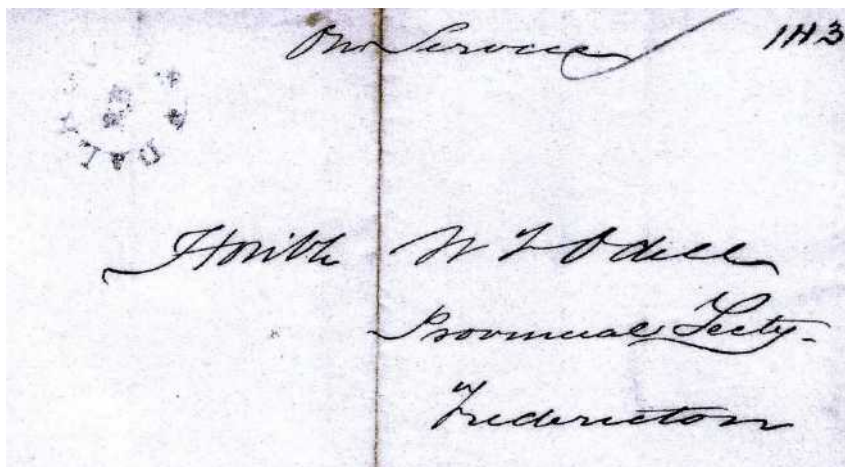 On Service
1143
Honble W F Odell
Provincial Secty.
Fredericton